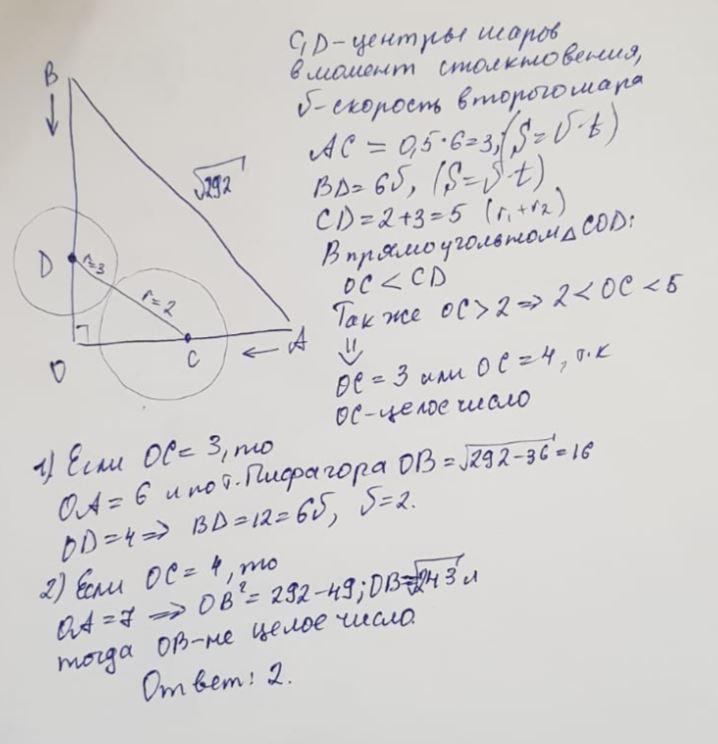 C,D-центры шаров
в момент столктовения,
б-скорость второго шара
AC = 0,5·6=3, (S=υ·t)
BD=6б, (S=υ·t)
CD=2+3=5 (r₁+r₂)
В прямоугольном △ COD:
OC < CD
Так же OC>2 ⇒ 2<OC<5
⇓
OC=3 или OC=4, т.к
OC-целое число
B
↓
√292
D
r=3
r=2
O
C
←
A
1) Если OC=3, то
OA=6 и по т. Пифагора OB=√292-36=16
OD=4 ⇒ BD=12=6б, б=2.
2) Если OC=4, то
OA=7 ⇒ OB²=292-49; OB=√243 и
тогда OB-не целое число.
Ответ: 2.